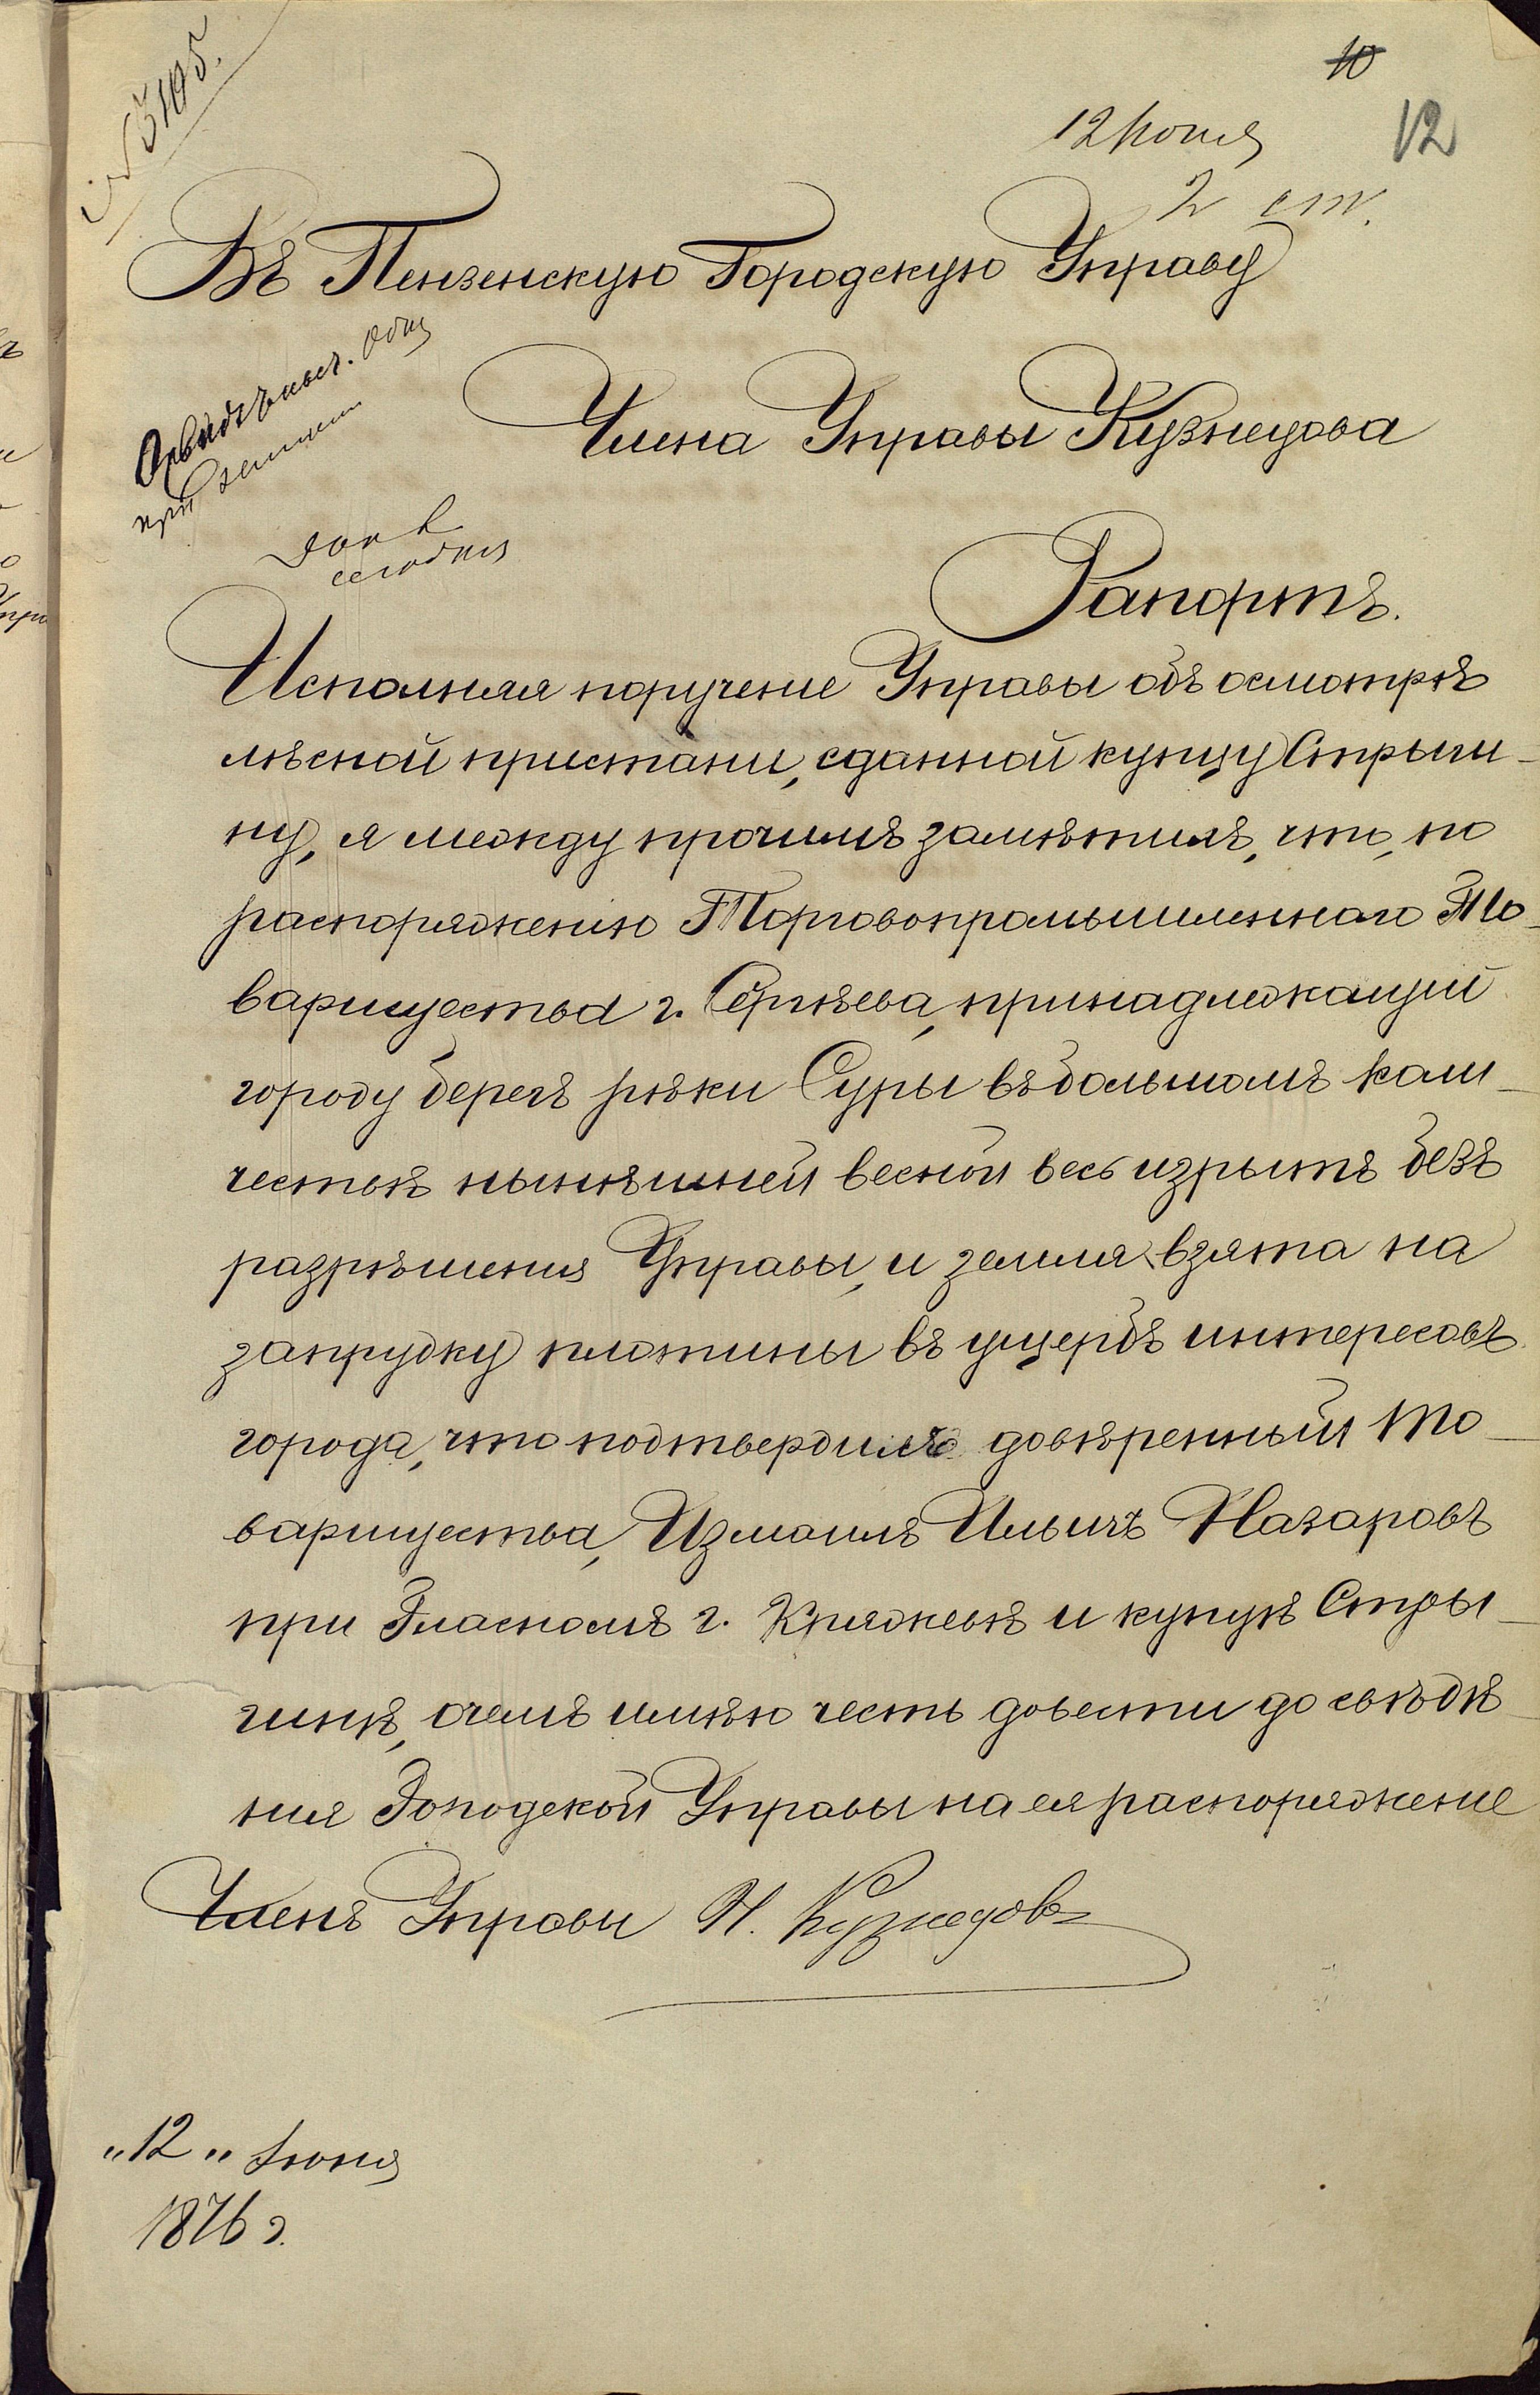 № 3105.
10
12
12 Іюня
2 ст.
Въ Пензенскую Городскую Управу
Члена Управы Кузнецова
при
сегодня
Рапортъ.
Исполняя порученіе Управы объ осмотрѣ
лѣсной пристани, сданной купцу Стрыги-
ну, я между прочимъ замѣтилъ, что, по
распоряженію Торговопромышленнаго То-
варищества г. Сергѣева, принадлежащій
городу берегъ рѣки Суры въ большомъ коли-
чествѣ нынѣшней весной весь изрытъ безъ
разрѣшенія Управы, и земля взята на
запрудку плотины въ ущербъ интересовъ
города, что подтвердилъ довѣренный То-
варищества, Измаилъ Ильичъ Назаровъ
при Гласномъ г. Кряжевѣ и купцѣ Стры-
гинѣ, о чемъ имѣю честь довести до свѣдѣ-
нія Городской Управы на ея распоряженіе
Членъ Управы Н. Кузнецовъ
"12" Іюня
1876 г.